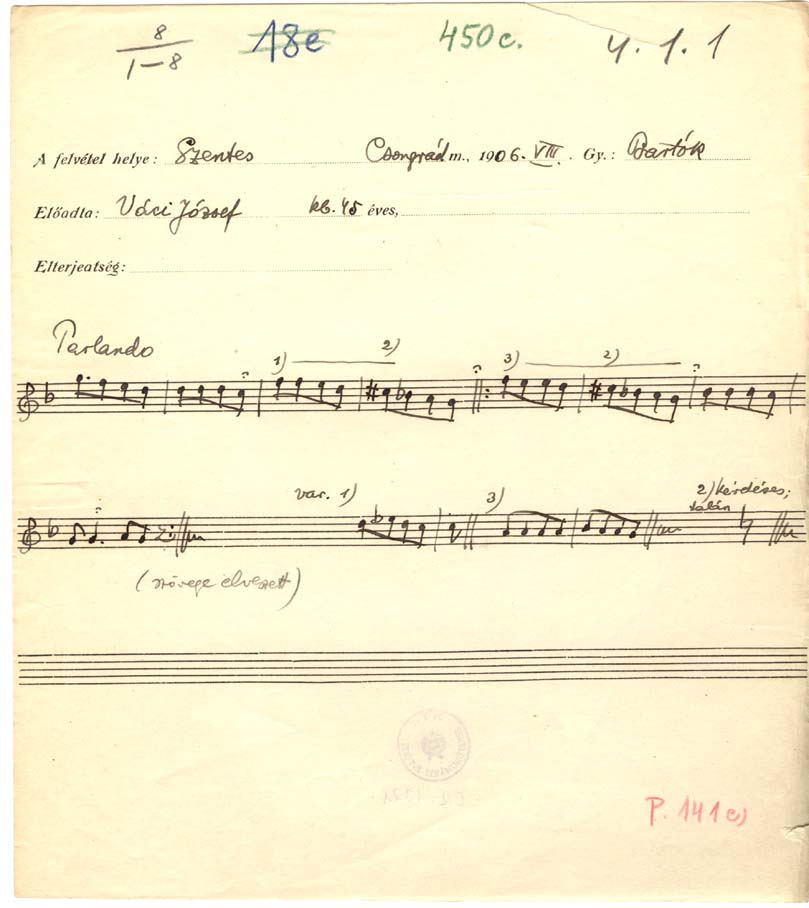 8 18e 450c. 4. 1. 1
1–8
A felvétel helye: Szentes Csongrád m., 1906. VIII. Gy.: Bartók
Előadta: Váci József kb. 45 éves,
Elterjeatség:
Parlando
1) 2) 3) 2)
var. 1) 3) 2) kérdéses;
talán
(szövege elveszett)
P. 141e)